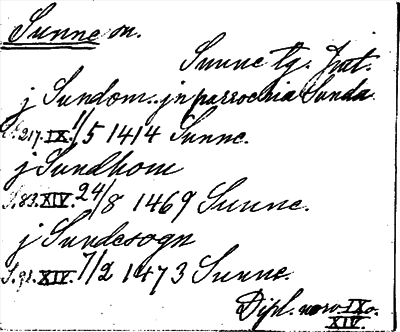 Sunne sn.
Sunne tg. Jmt.
j Sundom. jn parrochia Sunda.
S. 217. IX. 11/5 1414 Sunne.
j Sundhom
S. 83. XIV. 24/8 1469 Sunne.
j Sundesogn
S. 91. XIV. 7/2 1473 Sunne.
Dipl. norv. IX o.
XIV.